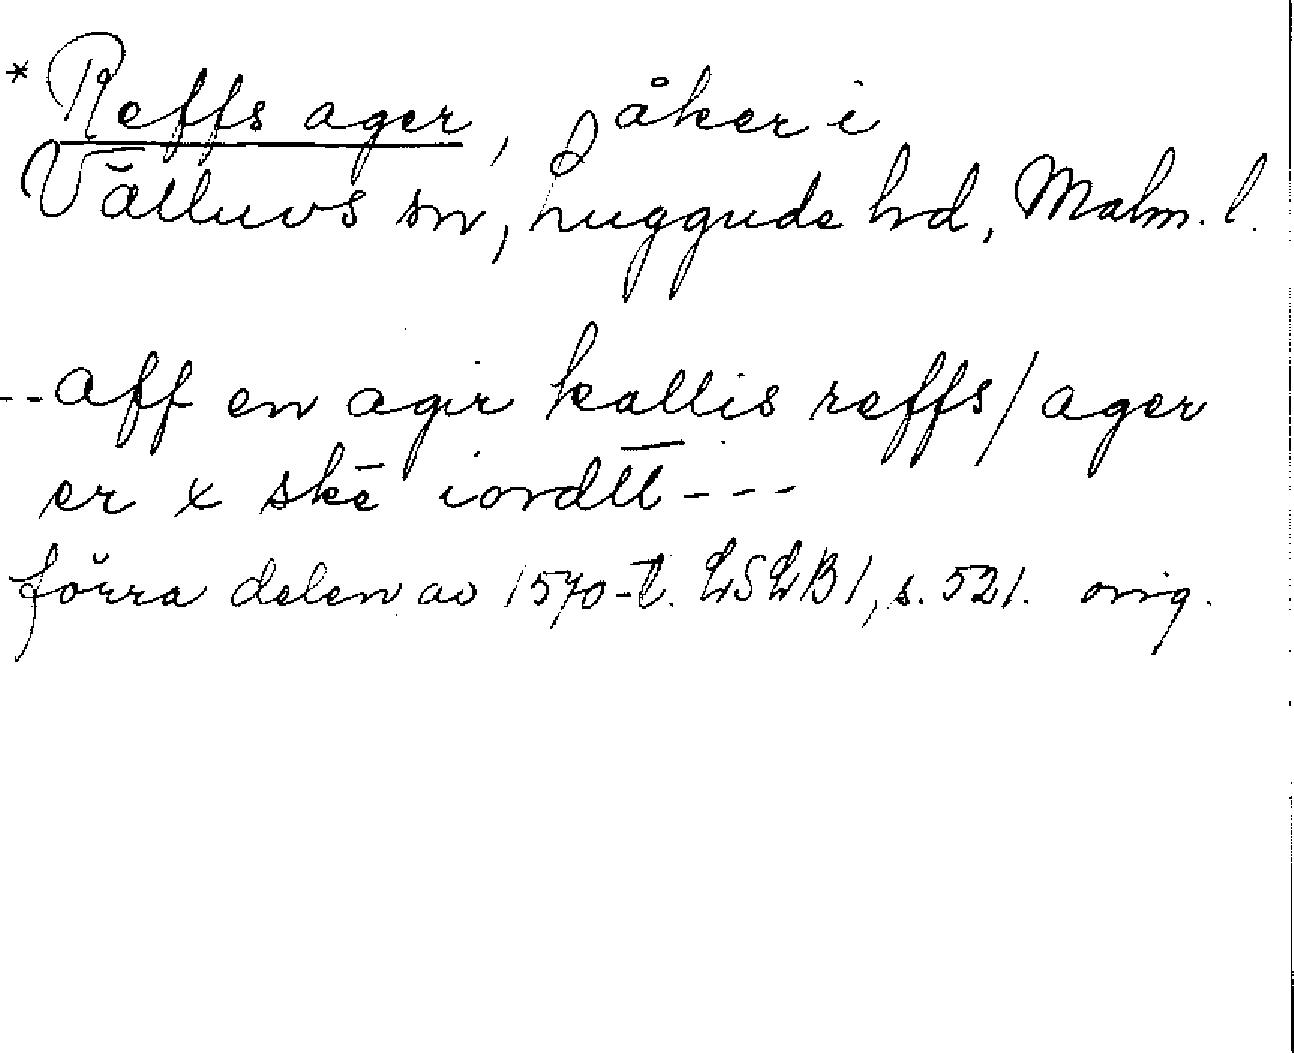 * Reffs ager, åker i
Välluvs sn, Luggude hd, Malm. l.
--aff en agir kallis reffs/ager
er x skē iordtt---
förra delen av 1570-t. LSLB1, s. 521. orig.